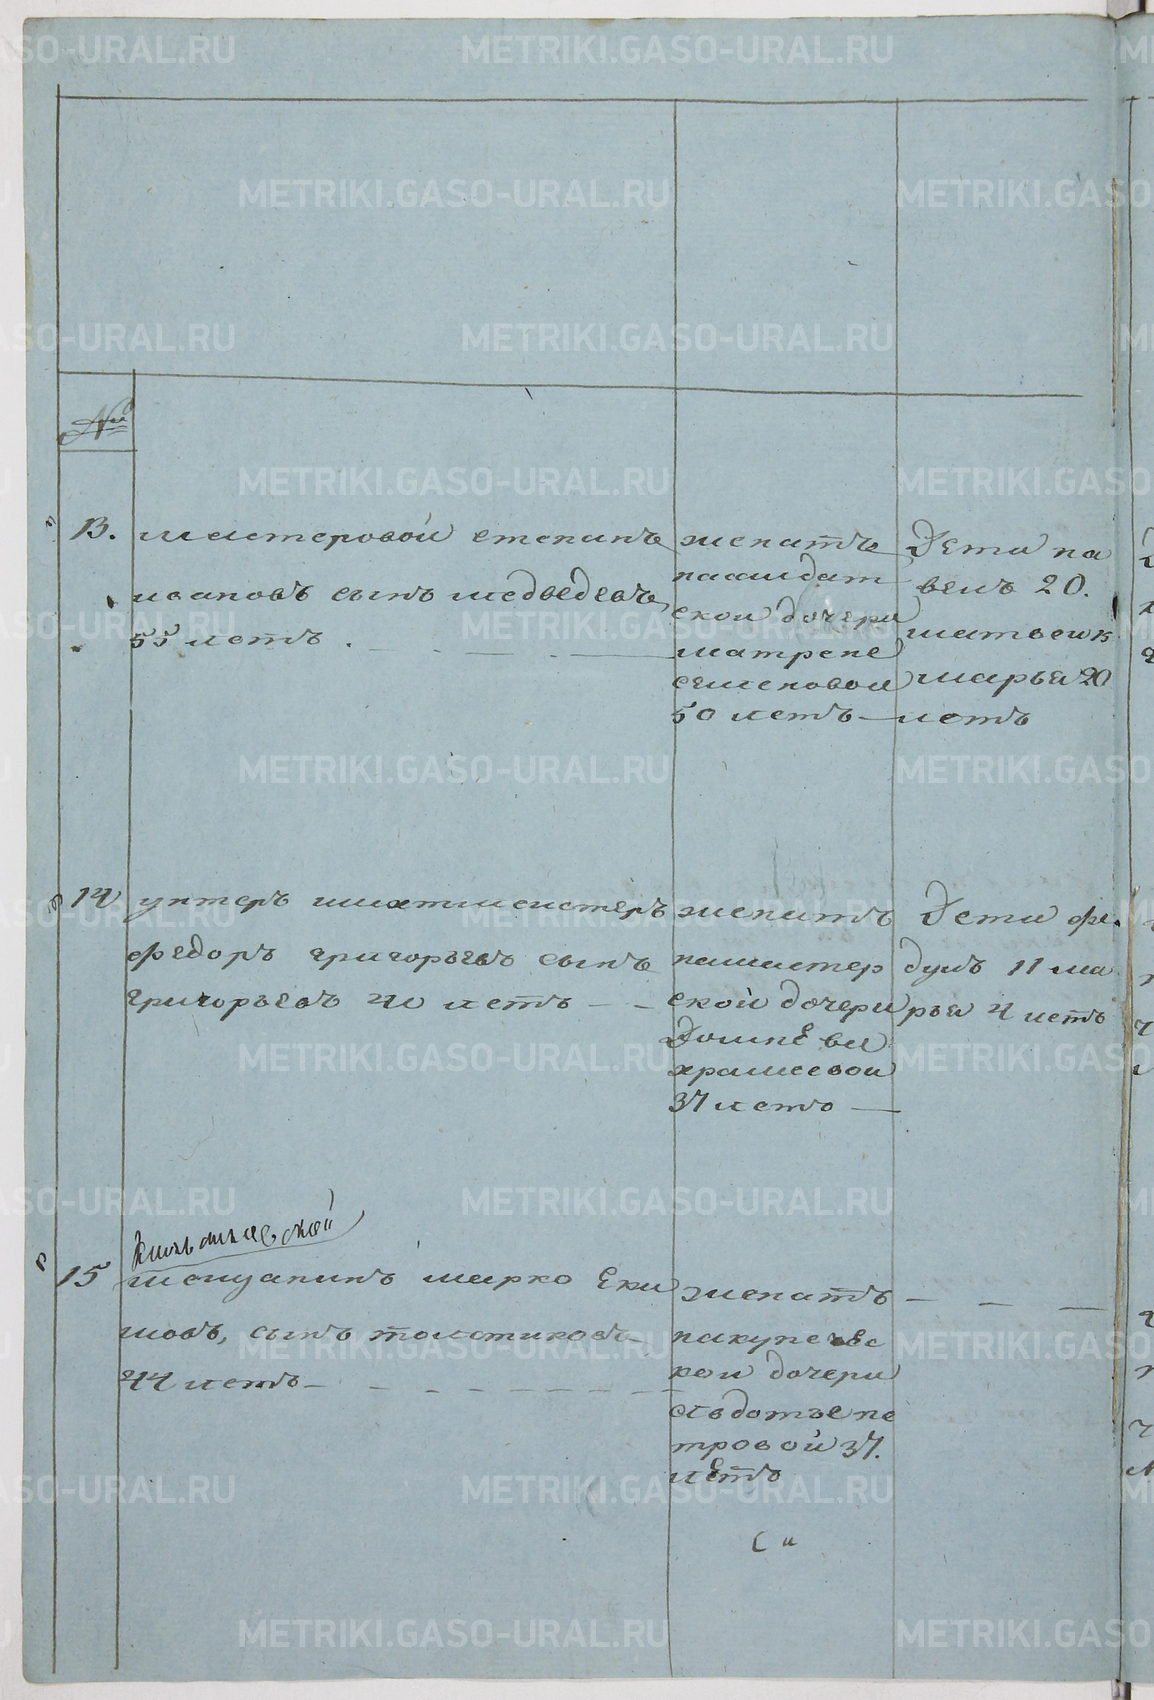 №
13.
мастеровой степанъ
ивановъ сынъ медведевъ
55 летъ.
женатъ
насалдат
ской дочери
матрене
семеновой
50 летъ
Дети па
велъ 20.
матвей 15
марья 20
летъ
14
унтеръ шихтмейстеръ
федоръ григорьевъ сынъ
григорьевъ 40 летъ
женатъ
намастер
ской дочери
Домне ва
храмеевой
37 летъ
Дети фе
дулъ 11 ма
рья 4 летъ
15
мещанинъ марко Еки
мовъ, сынъ толстиковъ
44 летъ
женатъ
накупечес
кой дочери
авдотье пе
тровой 37.
летъ
METRIKI.GASO-URAL.RU